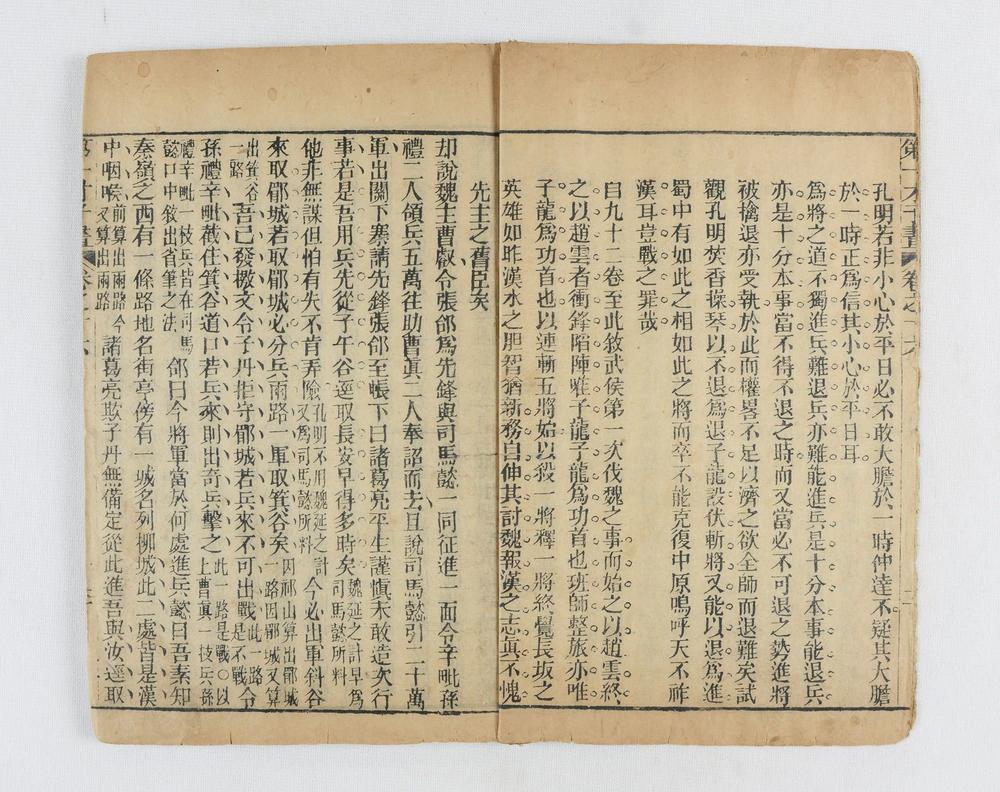 第一才子書 卷之
孔明若非小心於平日必不敢大膽於一時仲達不疑其大膽
於一時正爲信其小心於平日耳
爲將之道不獨進兵難退兵亦難能進兵是十分本事能退兵
亦是十分本事當不得不退之時而又當必不可退之勢進將
被擒退亦受執於此而權畧不足以濟之欲全師而退難矣試
觀孔明焚香操琴以不退爲退子龍設伏斬將又能以退爲進
蜀中有如此之相如此之將而卒不能克復中原嗚呼天不祚
漢耳豈戰之罪哉
自九十二卷至此敘武侯第一次伐魏之事而始之以趙雲終
之以趙雲者衝鋒陷陣唯子龍子龍爲功首也班師整旅亦唯
子龍爲功首也以連斬五將始以殺一將釋一將終覺長坂之
英雄如昨漢水之胆智猶新務自伸其討魏報漢之志眞不愧
先主之舊臣矣
却說魏主曹叡令張郃爲先鋒與司馬懿一同征進一面令辛毗孫
禮二人領兵五萬往助曹眞二人奉詔而去且說司馬懿引二十萬
軍出關下寨請先鋒張郃至帳下曰諸葛亮平生謹愼未敢造次行
事若是吾用兵先從子午谷逕取長安早得多時矣魏延之計早爲司馬懿所料
他非無謀但怕有失不肯弄險孔明不用魏延之計又爲司馬懿所料今必出軍斜谷
來取郿城若取郿城必分兵兩路一軍取箕谷矣因祁山算出郿城一路因郿城又算
出箕谷一路吾已發檄文令子丹拒守郿城若兵來不可出戰此一路是不戰令
孫禮辛毗截住箕谷道口若兵來則出奇兵擊之此一路是戰〇以上曹眞一技兵孫
禮辛毗一枝兵皆在司馬懿口中敘出省筆之法郃曰今將軍當於何處進兵懿曰吾素知
秦嶺之西有一條路地名街亭傍有一城名列柳城此二處皆是漢
中咽喉前算出兩路今又算出兩路諸葛亮欺子丹無備定從此進吾與汝逕取